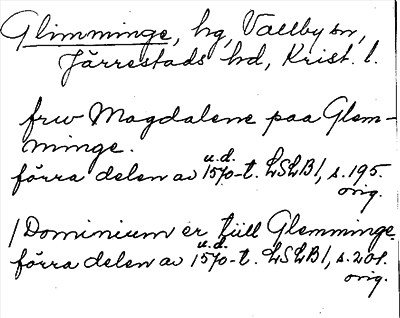 Glimminge, hg, Vallby sn,
Järrestads hd, Krist. l.
frw Magdalene paa Glem-
minge.
u.d.
förra delen av 1570-t. LSLB 1, s. 195.
orig.
/ Dominium er full Glemminge.
u.d.
förra delen av 1570-t. LSLB 1, s. 201.
orig.